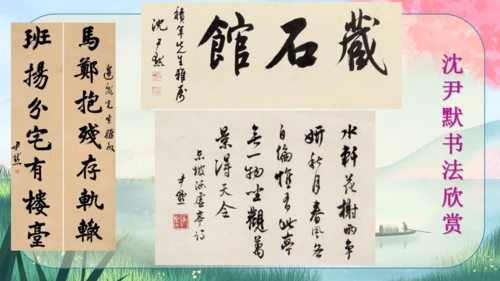 沈尹默书法欣赏
藏石館
積年先生雅屬
沈尹默
馬鄭抱殘存軌轍
先生
班揚分宅有樓臺
尹默
水軒花榭兩爭
妍秋月春風各
自偏惟有此亭
無一物坐觀萬
景得天全
東坡涵虛亭詩
尹默